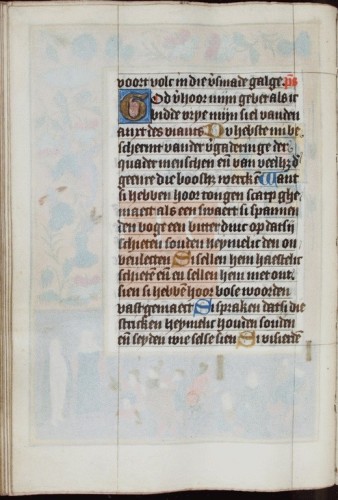 voort volc in die v̄smade galge p̄s
God v̄hoor mijn gebet als ic
bidde vrye mijn siel vanden
anxt des viants Du hebste mi be
schermt vander v̄gaderinge der
quader menschen en̄ van
geenre die boosh; wercken Want
si hebben hoor tongen scarp ghe
maect als een swaert si spannen
den boge een bitter dinc op dat si
schieten souden heymelic den on
bevlecten Si sellen hem haestelic
schietē en̄ en sellen hem niet ont
sien si hebbē hoor bose woorden
vast gemaect Si spraken dat si die
stricken heymelic houden souden
en̄ seyden wie selse sien Si